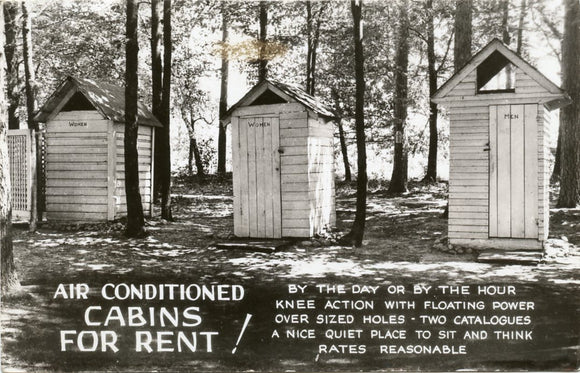 WOMEN
WOMEN
MEN
AIR CONDITIONED
CABINS
FOR RENT!
BY THE DAY OR BY THE HOUR
KNEE ACTION WITH FLOATING POWER
OVER SIZED HOLES - TWO CATALOGUES
A NICE QUIET PLACE TO SIT AND THINK
RATES REASONABLE